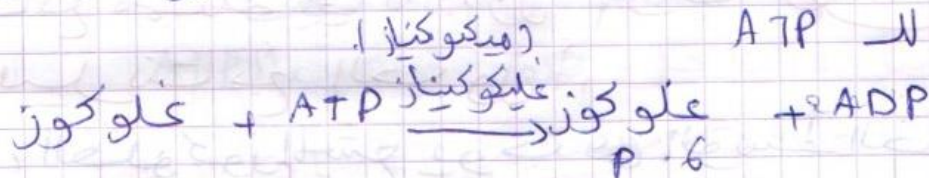 لل ATP
(هيكسوكيناز).
غلوكوز + ATP غليكوكيناز → غلوكوز + ADP
6 . P